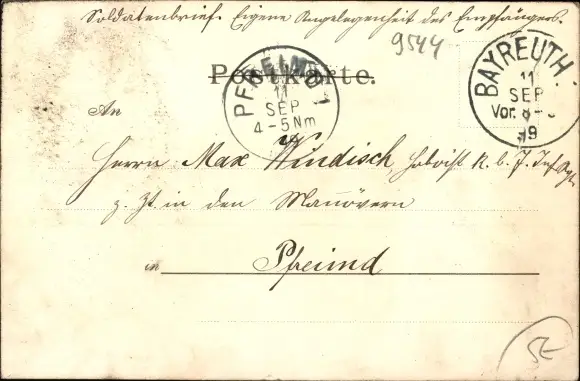 Soldatenbrief. Eigene Angelegenheit des Empfängers.
9544
Postkarte.
PFREIMD
11
SEP
4-5 Nm
BAYREUTH.
11
SEP
Vor. 8-
19
An
Herrn Max Windisch, k. b. 7. Inf.
z. Zt. in den Manövern
in Pfreimd